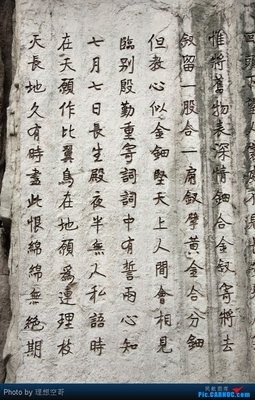 惟將舊物表深情鈿合金釵寄將去
釵留一股合一扇釵擘黃金合分鈿
但教心似金鈿堅天上人間會相見
臨別殷勤重寄詞詞中有誓兩心知
七月七日長生殿夜半無人私語時
在天願作比翼鳥在地願爲連理枝
天長地久有時盡此恨綿綿無絕期
Photo by 理想空哥
民航图库
Pic.CARNOC.com